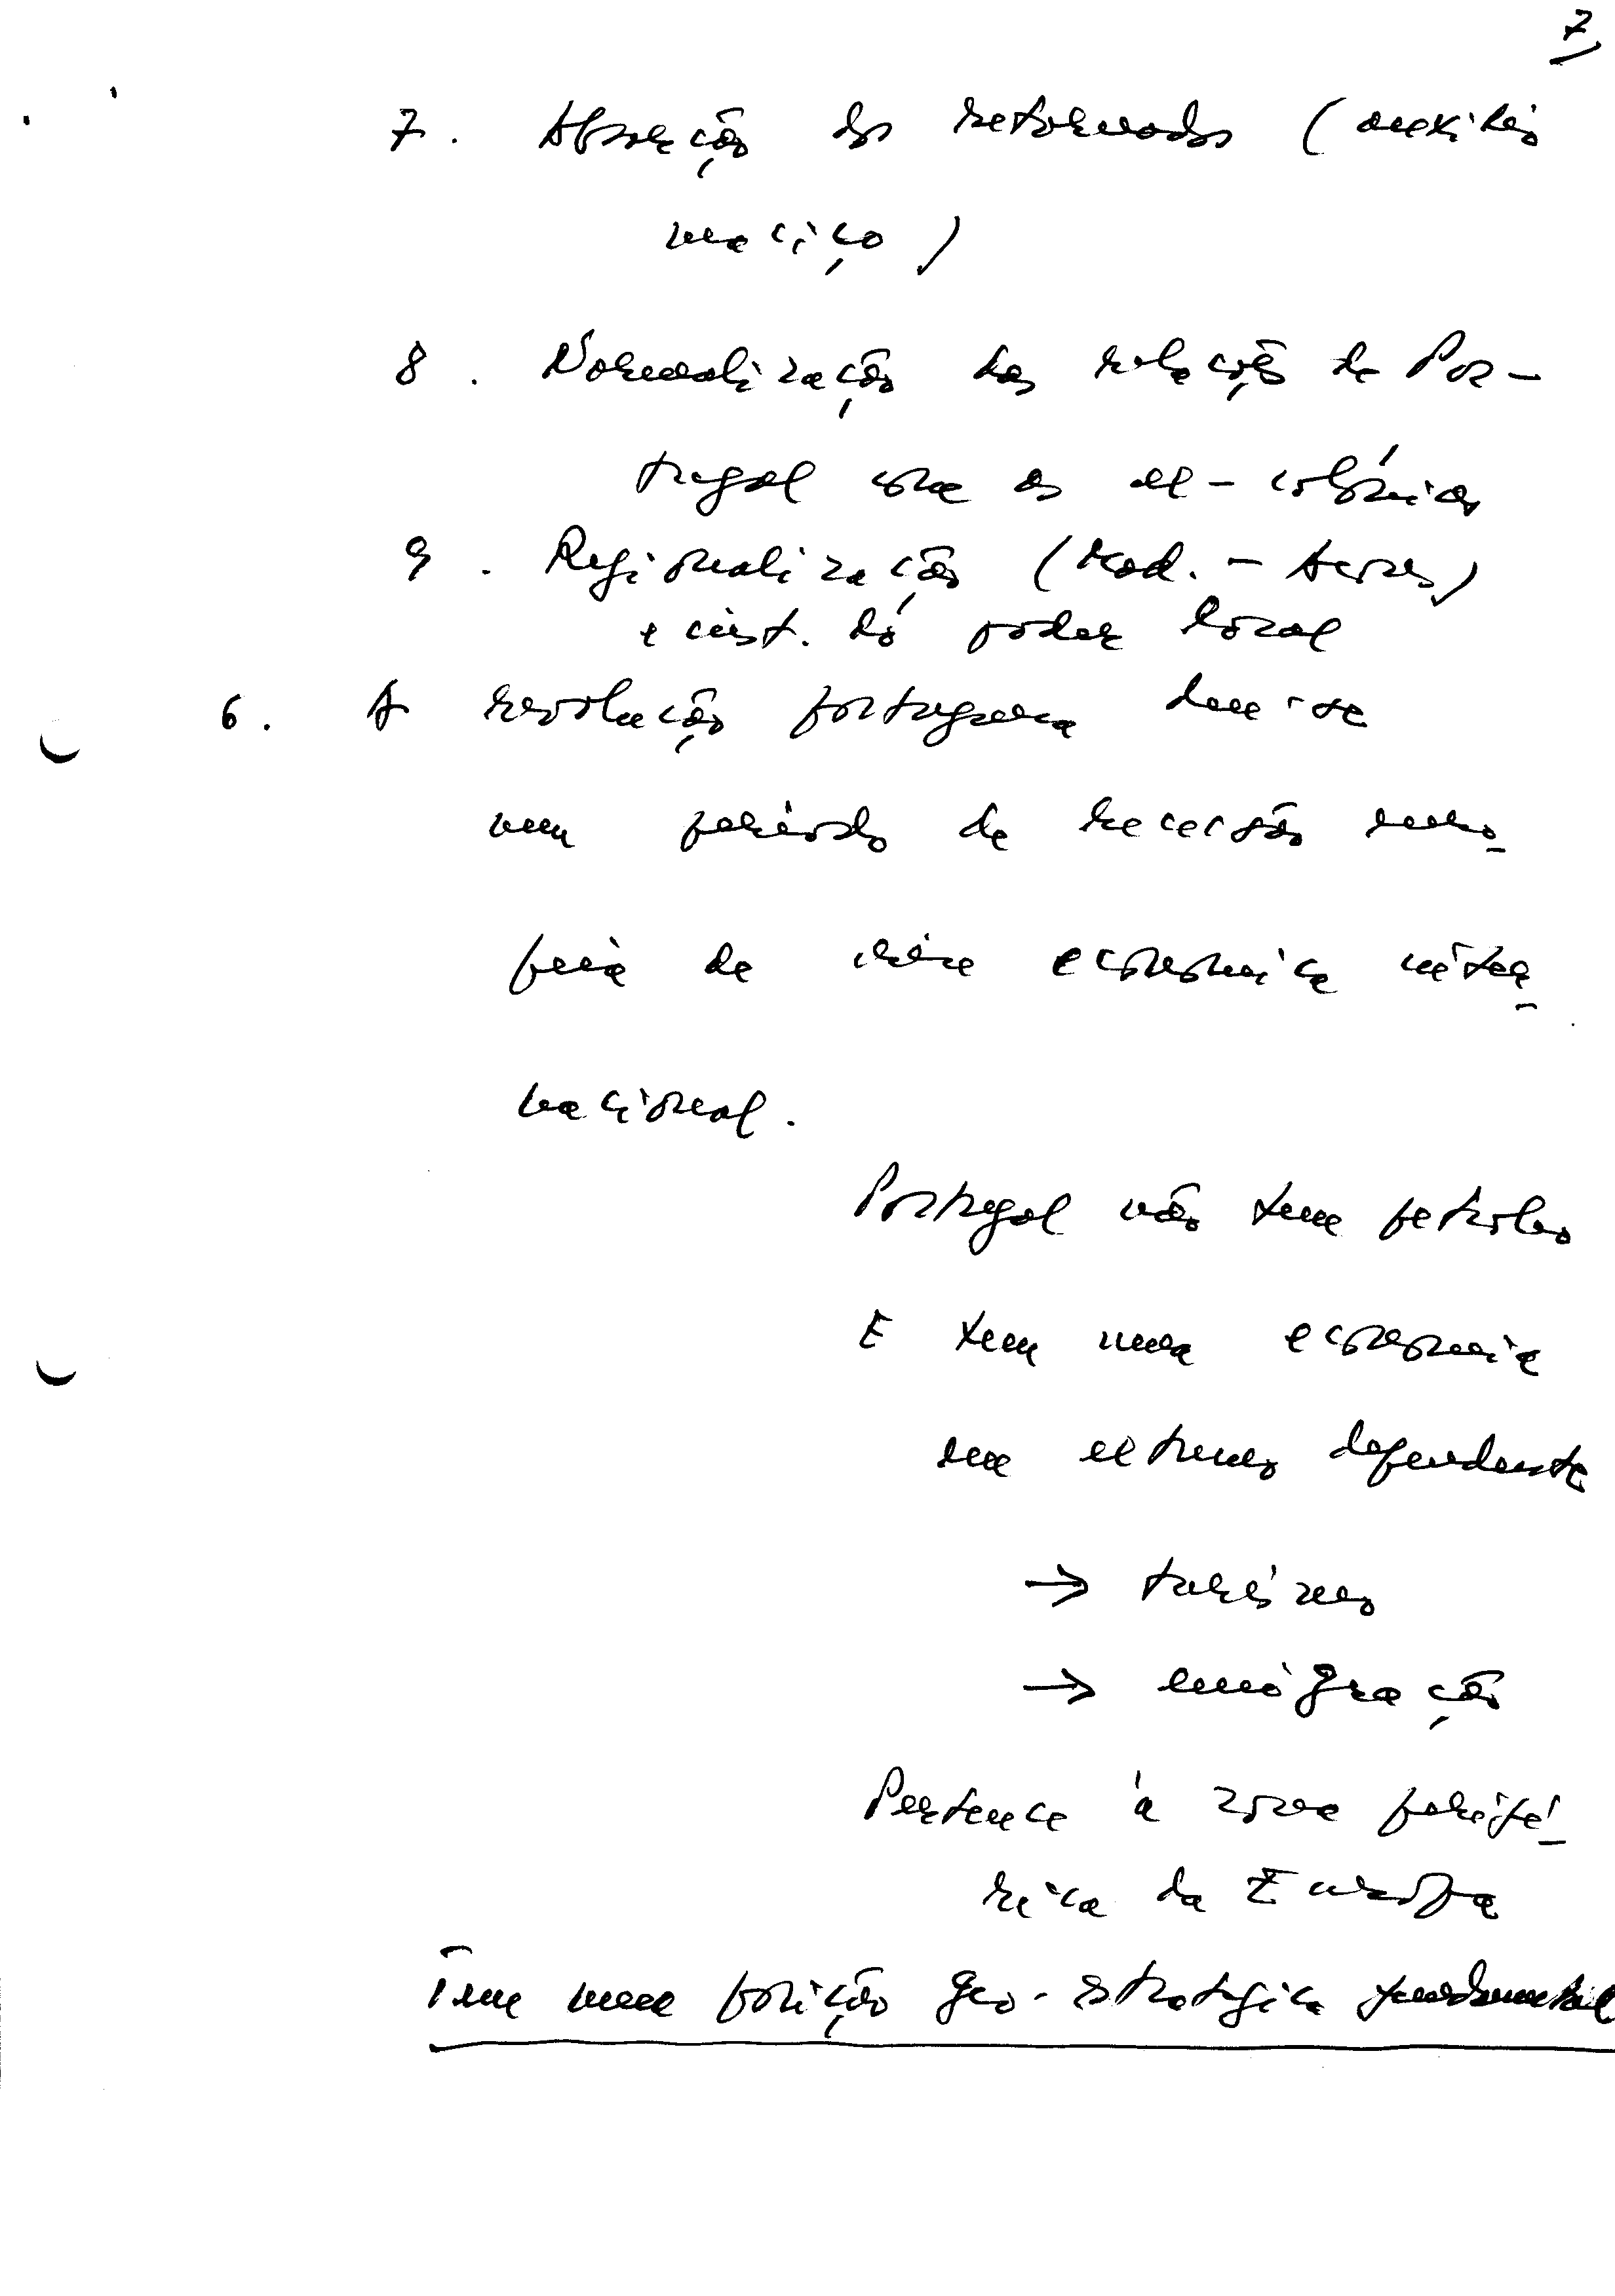 7
7. Absorção dos retornados (auxílio
maciço)
8. Normalização das relações de Por-
tugal com as ex-colónias
9. Regionalização (Mad. - Açores)
e inst. do poder local
6. A revolução portuguesa deu-se
num período de recessão euro-
peia de crise económica inter-
nacional.
Portugal não tem petróleo
E tem uma economia
em extremo dependente
→ turismo
→ emigração
Pertence à zona perifé-
rica da Europa
Tem uma posição geo-estratégica fundamental